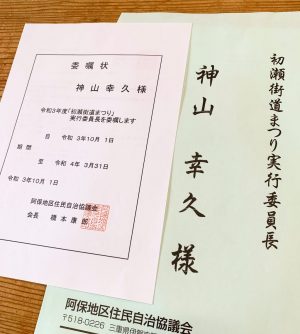 委嘱状
神山幸久様
令和3年度「初瀬街道まつり」
実行委員長を委嘱します
自 令和 3年10月 1日
期間
至 令和 4年 3月31日
令和 3年10月 1日
阿保地区住民自治協議会
会長 橋本康郎
初瀬街道まつり実行委員長
神山幸久様
阿保地区住民自治協議会
〒518-0226 三重県伊賀